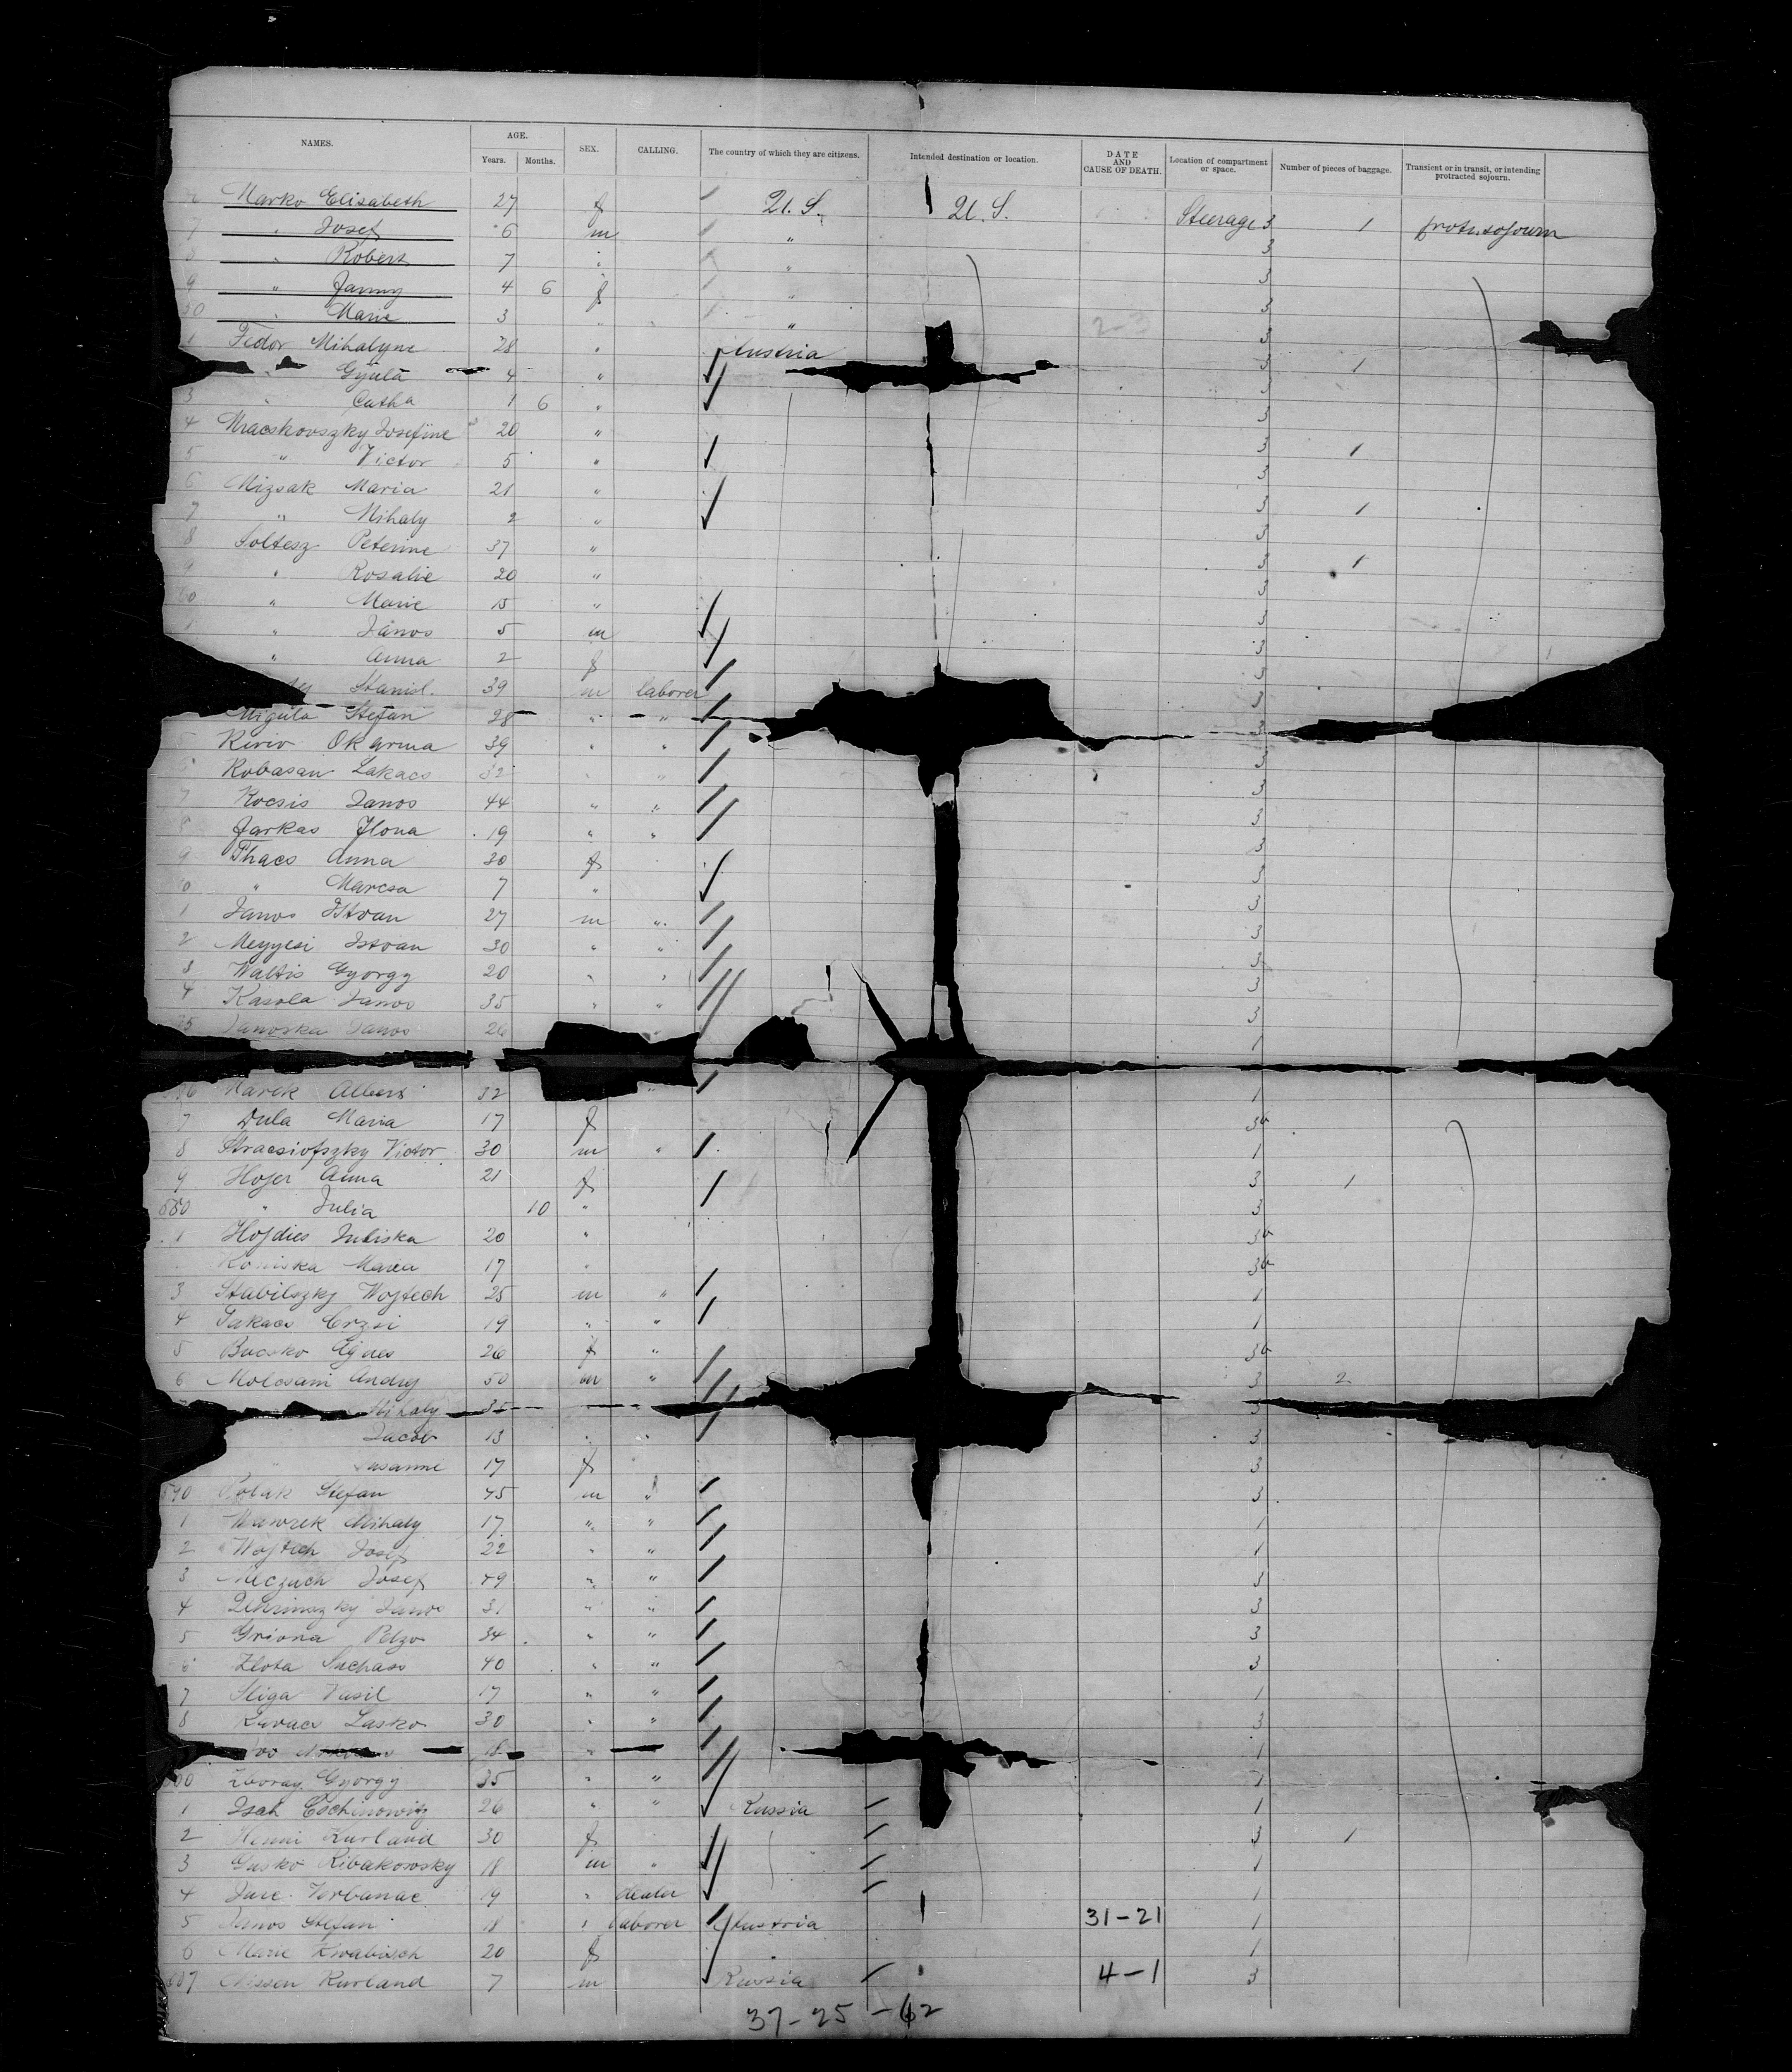 NAMES. AGE. Years. Months. SEX. CALLING. The country of which they are citizens. Intended destination or location. DATE AND CAUSE OF DEATH. Location of compartment or space. Number of pieces of baggage. Transient or in transit, or intending protracted sojourn.
Marko Elisabeth 27 f U.S. U.S. Steerage 3 1 protr. sojourn
7 " Josef 6 m " 3
8 " Robert 7 " " 3
9 " Fanny 4 6 f " 3
50 " Marie 3 " " 3
1 Fedor Mihalyne 28 " Austria 3 1
Gyula 4 " 3
3 " Catha 1 6 " 3
4 Mracskovszky Josefine 20 " 3 1
5 " Victor 5 " 3
6 Mizsak Maria 21 " 3 1
7 " Mihaly 2 " 3
8 Soltesz Peterine 37 " 3 1
9 " Rosalie 20 " 3
60 " Marie 15 " 3
" Janos 5 m 3
" Anna 2 f 3
Stanisl. 39 m laborer 3
Migula Stefan 28 " " 3
Kiriv Okarma 39 " " 3
Robasan Lakacs 32 " " 3
7 Kocsis Janos 44 " " 3
8 Farkas Ilona 19 " " 3
9 Thacs Anna 30 f 3
" Marcsa 7 " 3
1 Janos Istvan 27 m " 3
2 Meyyesi Istvan 30 " " 3
3 Waltis Gyorgy 20 " " 3
4 Kasola Janos 35 " " 3
75 Janoska Janos 26 1
76 Marek Albert 32 " 1
7 Dula Maria 17 f
8 Stracsiofszky Victor 30 m " 1
9 Hojer Anna 21 f 3 1
580 " Julia 10 " 3
1 Hojdics Juliska 20 "
Maria 17 "
3 Stabilszky Wojtech 25 m " 1
4 Takacs Erzsi 19 " " 1
5 Bucsko Agnes 26 f "
6 Molcsani Andrej 50 m " 3 2
Mihaly 35 3
Jacob 13 " " 3
Susanne 17 f 3
590 Polak Stefan 45 m " 3
1 Wawrek Mihaly 17 " " 1
2 Wojtech Josef 22 " " 1
3 Meczuch Josef 49 " " 3
4 Janos 31 " " 3
5 Griona Pelzo 34 " " 3
6 Zlota Suchass 40 " " 3
7 Sliga Vasil 17 " " 1
8 Kovacs Lasko 30 " " 3
18 " 1
600 Zboray Gyorgy 35 " " 1
1 Isak Cochinowitz 26 " " Russia 1
2 Henni Kurland 30 f 3 1
3 Gusko Ribakowsky 18 m " 1
4 Jure Verbanac 19 " dealer 1
5 Janos Stefan 18 " laborer Austria 31-21 1
6 Marie Kwabisch 20 f 1
607 Nissen Kurland 7 m Russia 4-1 3
37-25-62